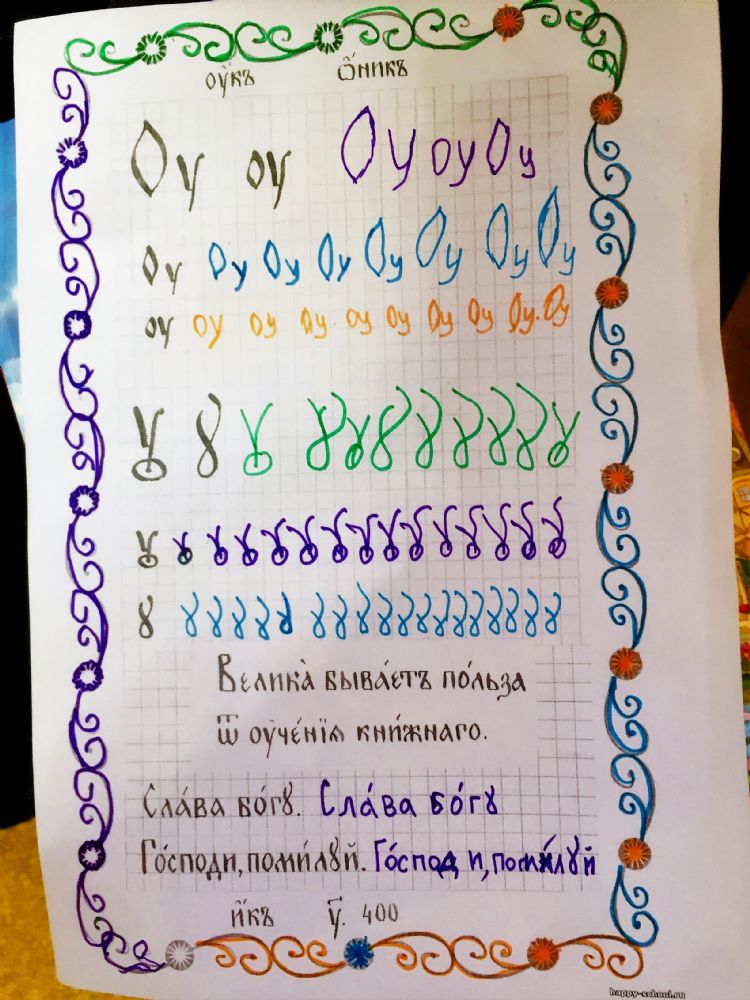 оу҆́къ ѿ҆́никъ
Оу оу Оу оу Оу
Оу Оу Оу Оу Оу Оу Оу Оу
оу оу оу оу оу оу оу оу оу оу
Ꙋ ꙋ Ꙋ Ꙋ Ꙋ Ꙋ Ꙋ Ꙋ Ꙋ Ꙋ Ꙋ
Ꙋ Ꙋ Ꙋ Ꙋ Ꙋ Ꙋ Ꙋ Ꙋ Ꙋ Ꙋ Ꙋ Ꙋ Ꙋ Ꙋ
ꙋ ꙋ ꙋ ꙋ ꙋ ꙋ ꙋ ꙋ ꙋ ꙋ ꙋ ꙋ ꙋ ꙋ ꙋ
Велика̀ быва́етъ по́льза
ѿ оуче́нїѧ кни́жнаго.
Сла́ва бо́гꙋ. Сла́ва бо́гꙋ
Го́споди, поми́лꙋй. Го́споди, поми́лꙋй
и҆́къ у҃. 400
happy-school.ru